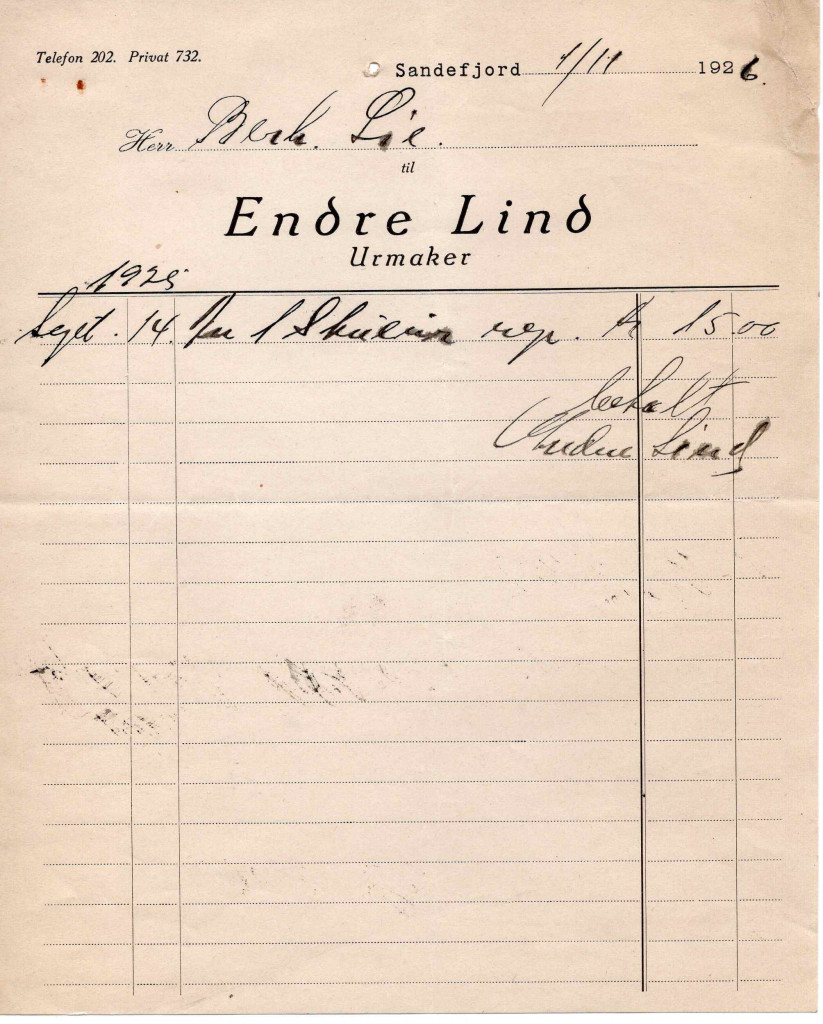 Telefon 202. Privat 732.
Sandefjord 1/11 1926.
Herr Berh. Lie.
til
Endre Lind
Urmaker
1925
Sept. 14. 1 rep. Kr 15.00
betalt
Endre Lind